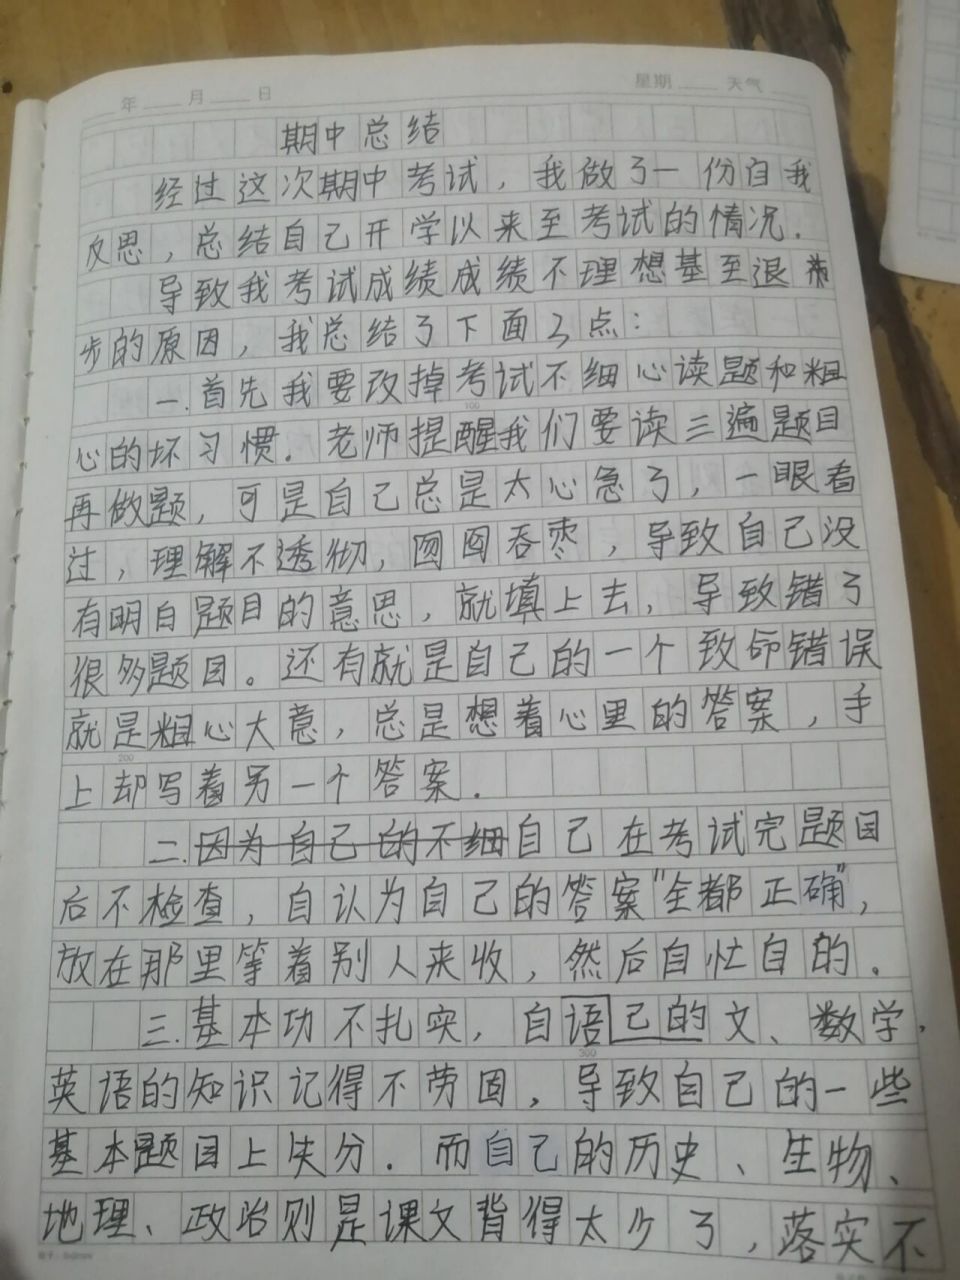 年 月 日 星期 天气
期中总结
经过这次期中考试，我做了一份自我
反思，总结自己开学以来至考试的情况.
导致我考试成绩成绩不理想基至退
步的原因，我总结了下面了点：
一.首先我要改掉考试不细心读题和粗
心的坏习惯.老师提醒我们要读三遍题目
再做题，可是自己总是太心急了，一眼看
过，理解不透彻，囫囵吞枣，导致自己没
有明白题目的意思，就填上去，导致错了
很多题目。还有就是自己的一个致命错误
就是粗心大意，总是想着心里的答案，手
上却写着另一个答案.
二.因为自己的不细自己在考试完题目
后不检查，自认为自己的答案"全都正确"，
放在那里等着别人来收，然后自忙自的.
三.基本功不扎实，自语己的文、数学，
英语的知识记得不劳固，导致自己的一些
基本题目上失分.而自己的历史、生物、
地理、政治则是课文背得太少了，落实不
100
200
300